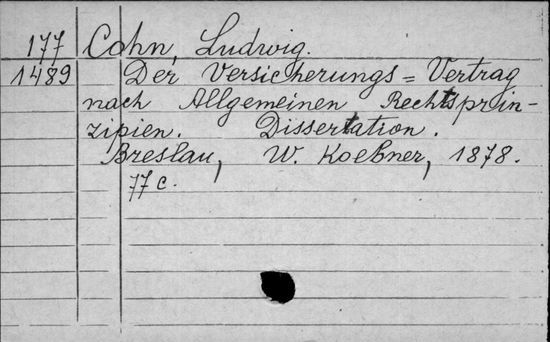 177 Cohn, Ludwig.
1489 Der Versicherungs=Vertrag
nach Allgemeinen Rechtsprin-
zipien. Dissertation.
Breslau, W. Koebner, 1878.
77 c.